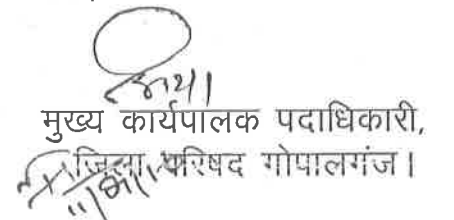 मुख्य कार्यपालक पदाधिकारी,
जिला परिषद गोपालगंज।